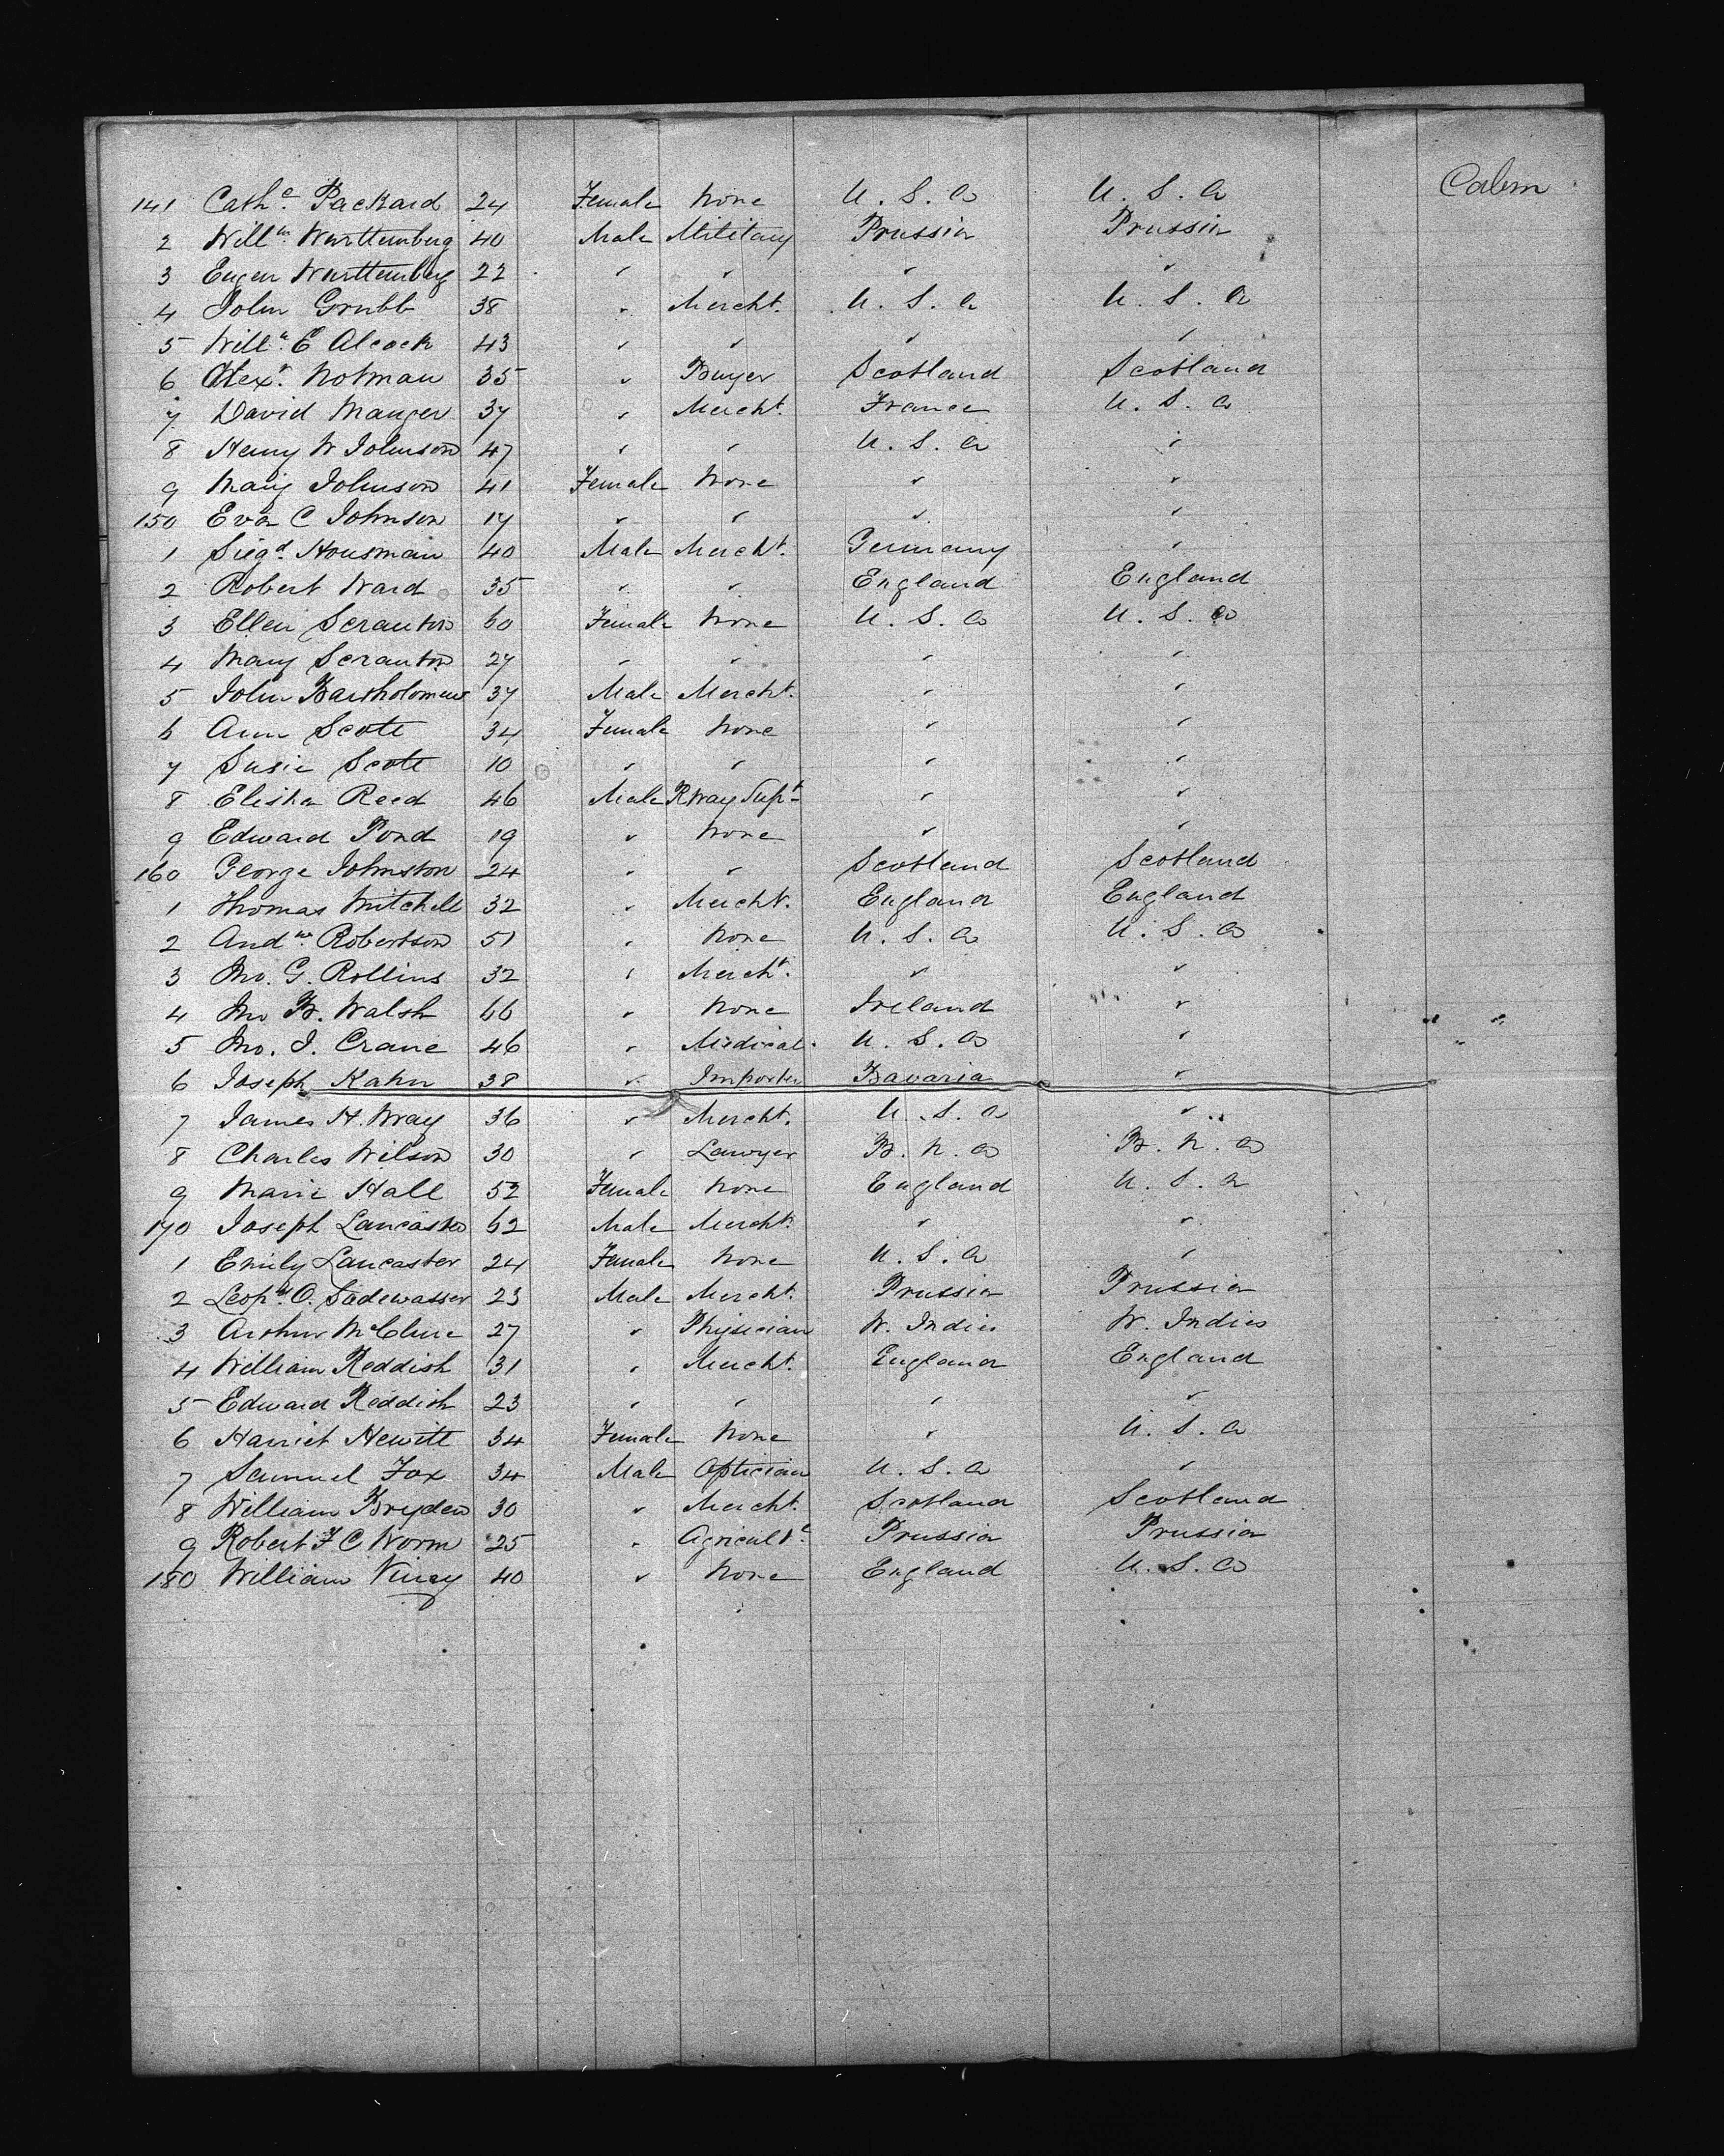 141 Cathe. Packard 24 Female None U. S. A U. S. A Cabin
2 Willm. Wurttemberg 40 Male Military Prussia Prussia
3 Eugen Wurttemberg 22 " " " "
4 John Grubb 38 " Mercht. U. S. A U. S. A
5 Willm. E Alcock 43 " " " "
6 Alexr. Notman 35 " Buyer Scotland Scotland
7 David Manger 37 " Mercht. France U. S. A
8 Henry W Johnson 47 " " U. S. A "
9 Mary Johnson 41 Female None " "
150 Eva C Johnson 17 " " " "
1 Siegd. Housman 40 Male Mercht. Germany "
2 Robert Ward 35 " " England England
3 Ellen Scranton 60 Female None U. S. A U. S. A
4 Mary Scranton 27 " " " "
5 John Bartholomew 37 Male Mercht. " "
6 Ann Scott 34 Female None " "
7 Susie Scott 10 " " " "
8 Elisha Reed 46 Male RWay Supt " "
9 Edward Pond 19 " None " "
160 George Johnston 24 " " Scotland Scotland
1 Thomas Mitchell 32 " Mercht. England England
2 Andw. Robertson 51 " None U. S. A U. S. A
3 Jno. G. Rollins 32 " Mercht. " "
4 Jno B. Walsh 66 " None Ireland "
5 Jno. J. Crane 46 " Medical U. S. A "
6 Joseph Kahn 38 " Importer Bavaria "
7 James H. Wray 36 " Mercht. U. S. A "
8 Charles Wilson 30 " Lawyer B. N. A B. N. A
9 Marie Hall 52 Female None England U. S. A
170 Joseph Lancaster 62 Male Mercht. " "
1 Emily Lancaster 24 Female None U. S. A "
2 Leopd. O. Sadewasser 23 Male Mercht. Prussia Prussia
3 Arthur McClure 27 " Physician W. Indies W. Indies
4 William Reddish 31 " Mercht. England England
5 Edward Reddish 23 " " " "
6 Harriet Hewitt 34 Female None " U. S. A
7 Samuel Fox 34 Male Optician U. S. A "
8 William Bryden 30 " Mercht. Scotland Scotland
9 Robert F C Worm 25 " Agricultl. Prussia Prussia
180 William Viney 40 " None England U. S. A